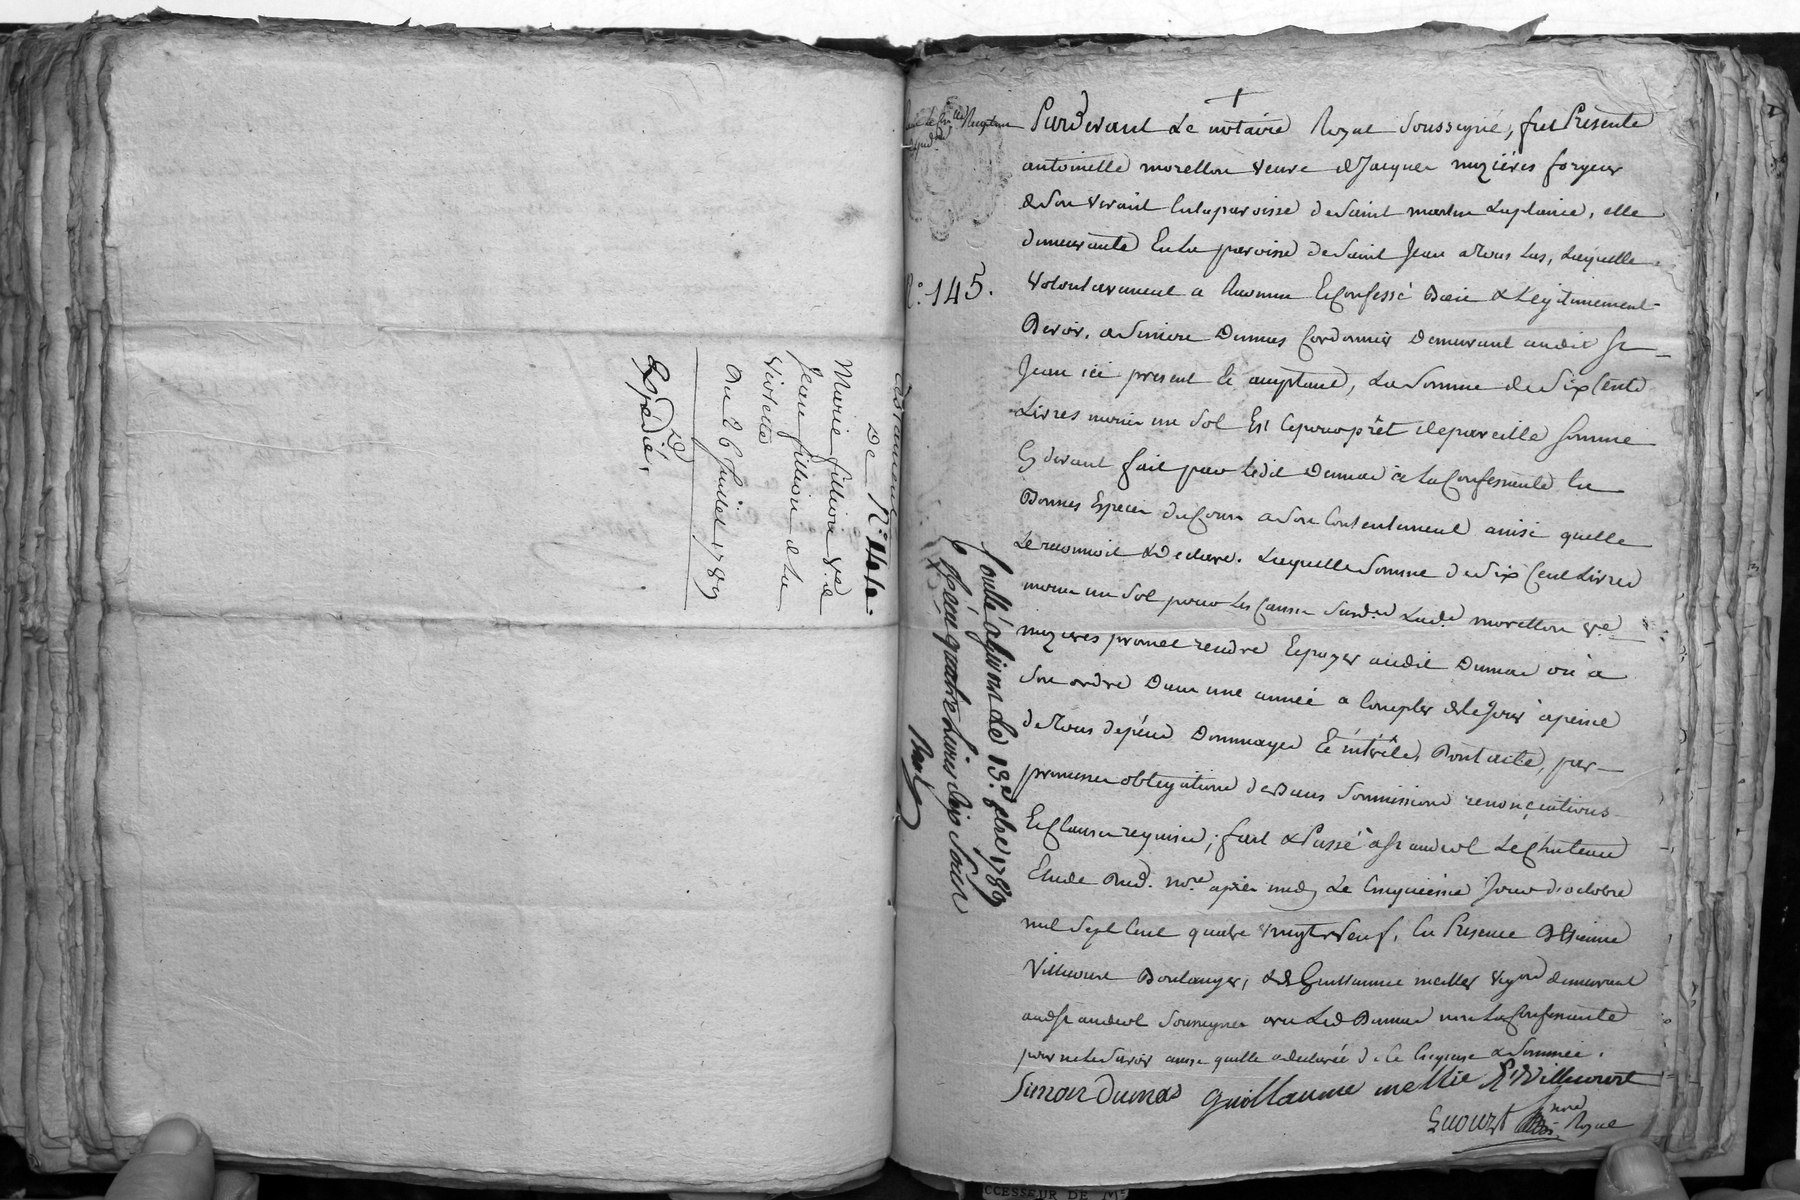 testament
De N.° 144.
Marie fillion v.e de
Jean fillion de la
Violette
Du 26 Juillet 1789
Expédié.
N.° 145.
Pardevant Le notaire Royal Soussigné, fut Presente
antoinette morellon veuve de Jacques mezières forgeur
de Son vivant En la paroisse de Saint martin La plaine, elle
demeurante En la paroisse de Saint Jean a Tous Las, Laquelle
volontairement a Reconnu & Confessé Bien & Legitimement
Devoir, a Simon Dumas Cordonnier Demeurant audit St
Jean ici present & acceptant, La Somme de Six Cents
Livres moins un Sol Et Ce pour prêt de pareille Somme
Cy devant fait par Ledit Dumas a La Confessante En
Bonnes Especes du Cours a Son Contentement ainsi quelle
Le reconnoit & Declare. Laquelle Somme de Six Cent Livres
moins un Sol pour Les Causes Susd. Lad. morellon v.e
mezieres promet rendre & payer audit Dumas ou à
Son ordre Dans une année a Compter de Ce Jour à peine
de Tous depens Dommages & intérêts, Dont acte, par
promesses obligations de Biens Soumissions renonciations
& Clauses requises; fait & Passé à St andeol Le Chateau
Etude Dud. no.re après midy Le Cinquieme Jour d'octobre
mil Sept Cent quatre vingt neuf, En Presence D'Etienne
Villecourt Boulanger, & de Guillaume mellier vig.on demeurant
aud St andeol Soussignés avec Led Dumas non La Confessante
pour ne Le Savoir ainsi quelle a declaré de Ce Enquise & Sommée.
Simon Dumas Guillaume mellie Et Villecourt
no.re Royal
Controllé à givors Le 13.e 8bre 1789
Reçu quatre Livres dix Sols